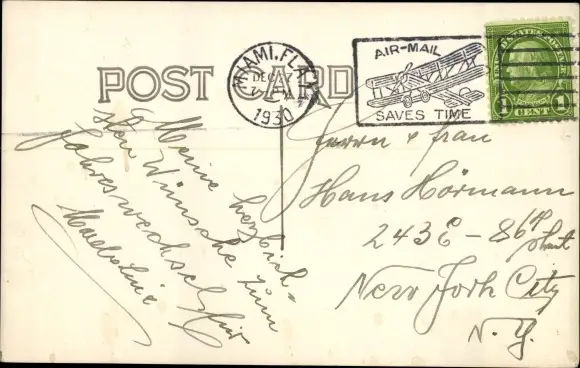 POST CARD
MIAMI, FLA.
DEC
1930
AIR-MAIL
SAVES TIME
UNITED STATES POSTAGE
1 CENT 1
Meine herzlich-
sten Wünsche zum
Jahreswechsel
Madeleine
Herrn & frau
Hans Hörmann
243 E - 86th
New York City
N.Y.